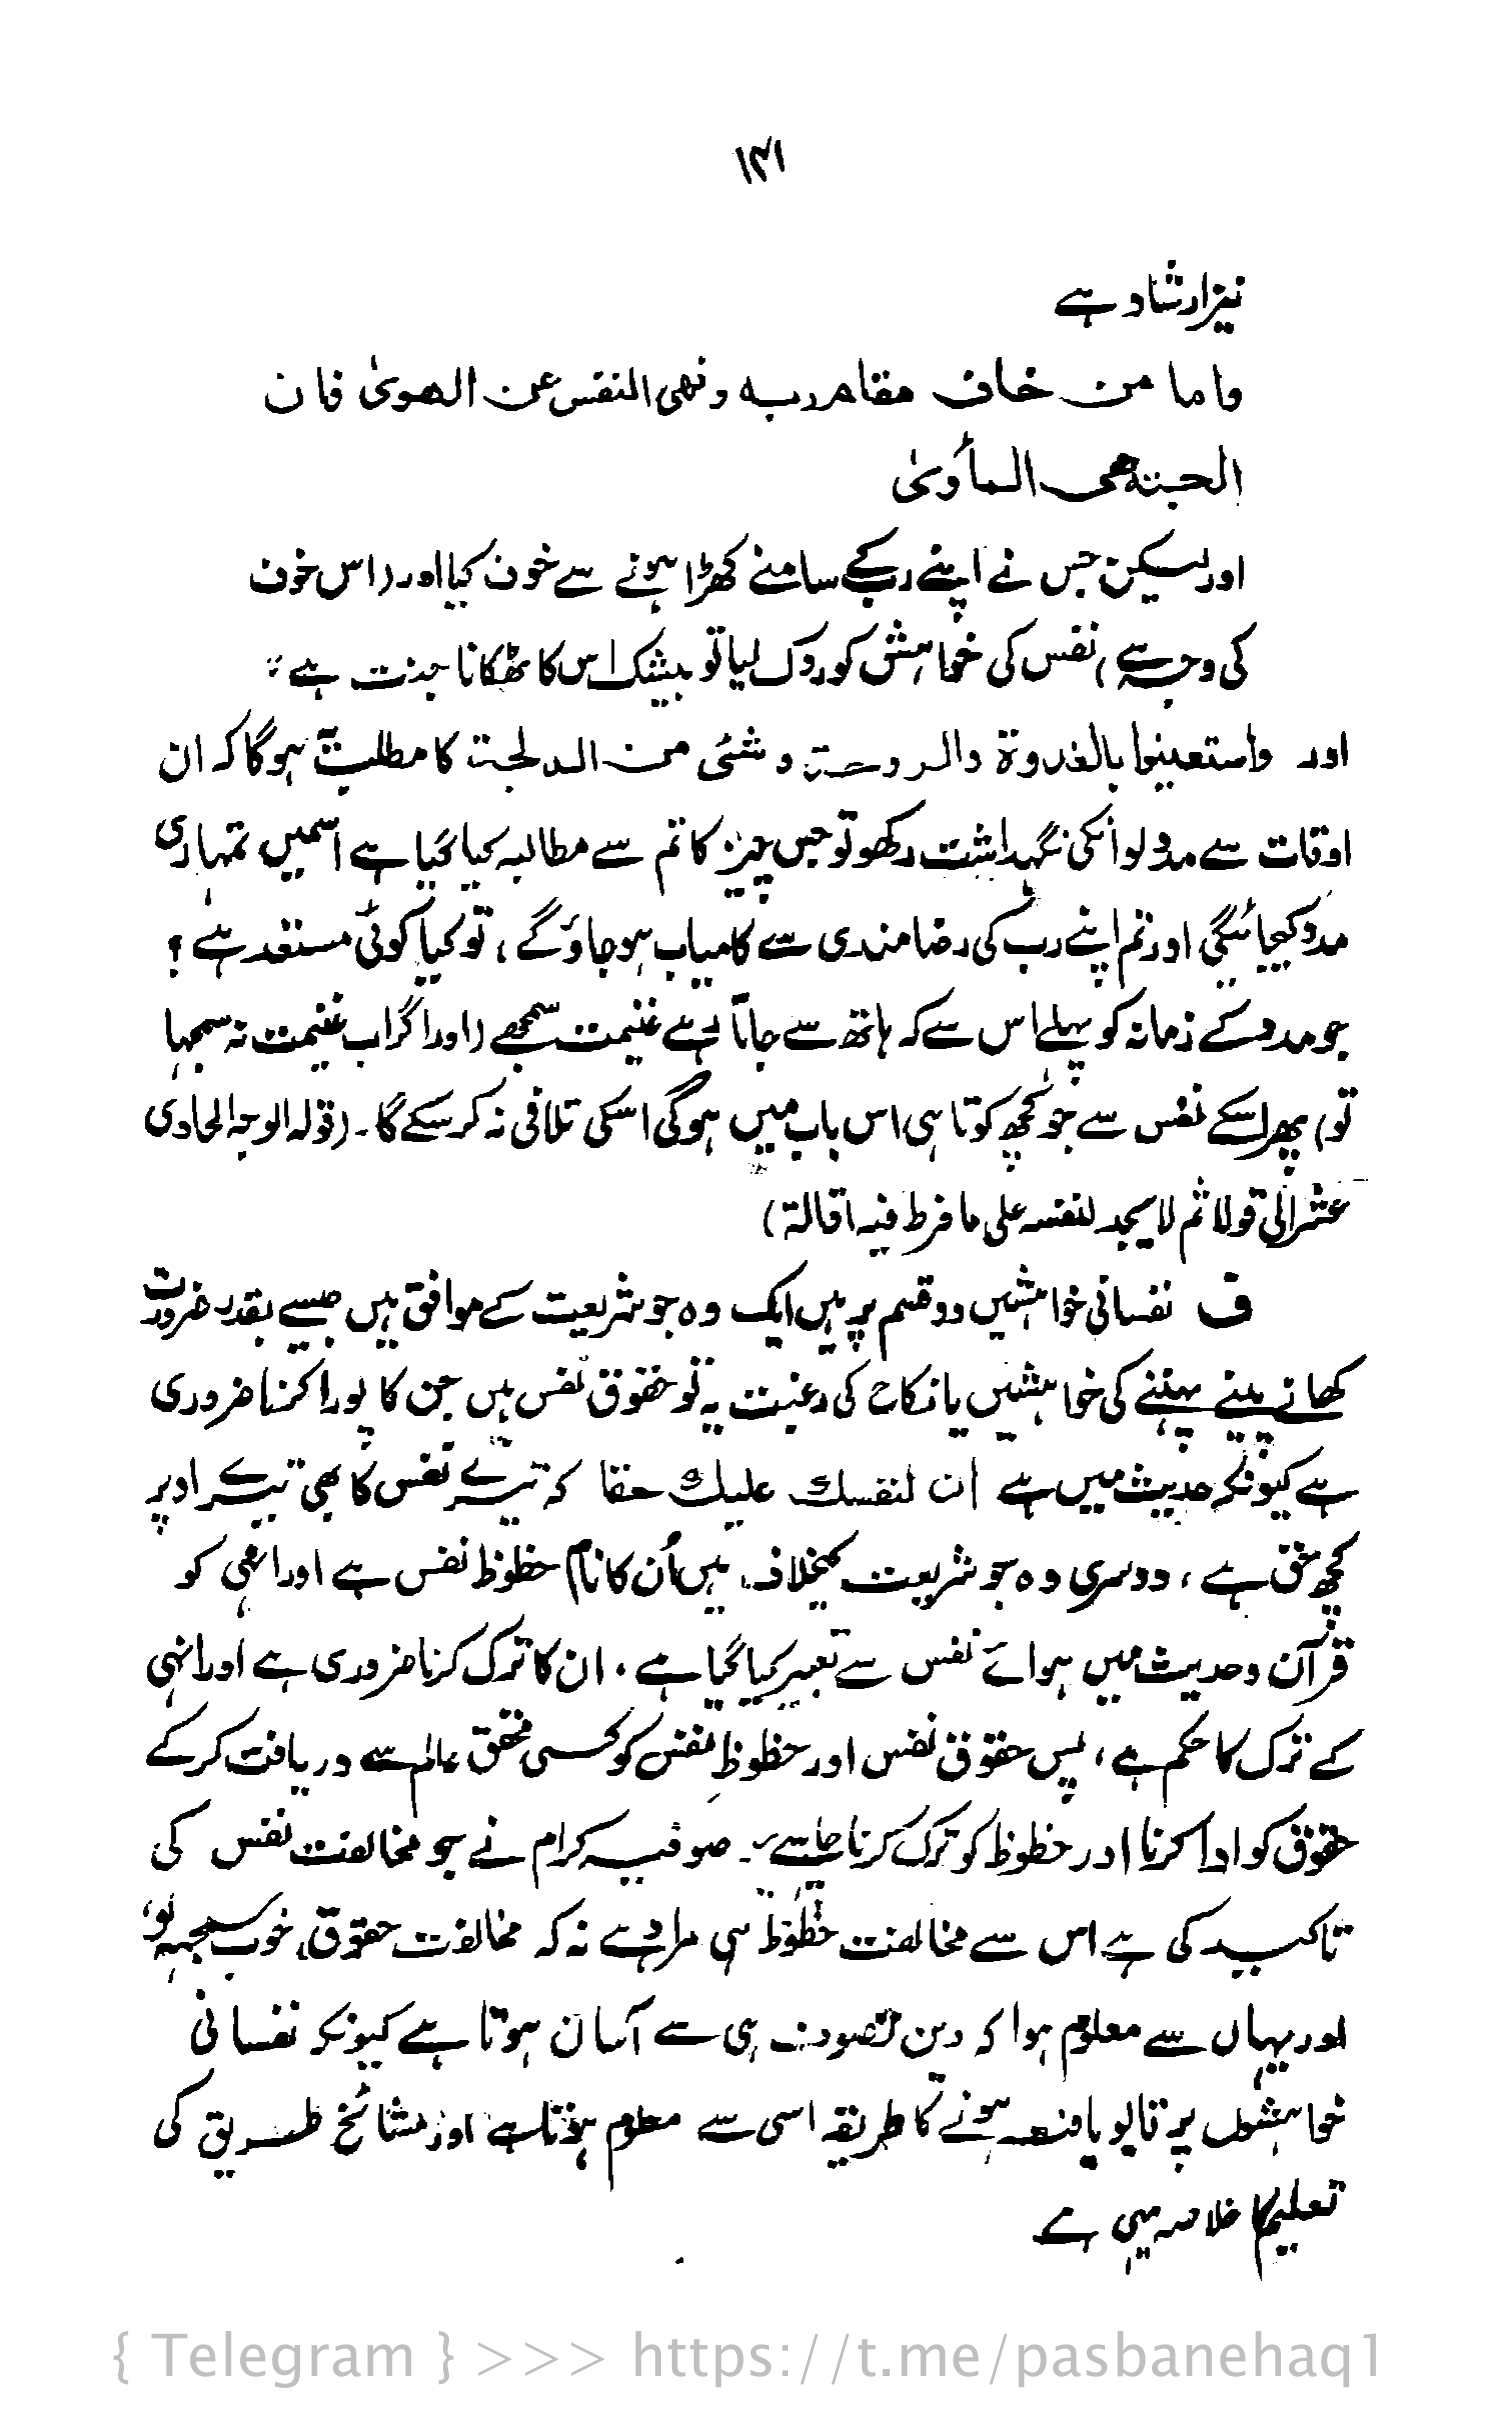 ۱۴۱
نیز ارشاد ہے
واما من خاف مقام ربہ ونھی النفس عن الھویٰ فان
الجنۃ ھی المأویٰ
اور لیکن جس نے اپنے رب کے سامنے کھڑا ہونے سے خوف کیا اور (اس خوف
کی وجہ سے) نفس کی خواہش کو روک لیا تو بیشک اس کا ٹھکانا جنت ہے ؛
اور واستعینوا بالغدوۃ والروحۃ و شئی من الدلجۃ کا مطلب ہوگا کہ ان
اوقات سے مدد لو انکی نگہداشت رکھو تو جس چیز کا تم سے مطالبہ کیا گیا ہے اسمیں تمہاری
مدد کیجائیگی اور تم اپنے رب کی رضامندی سے کامیاب ہو جاؤگے ، تو کیا کوئی مستعد ہے ؟
جو مدد کے زمانہ کو پہلے اس سے کہ ہاتھ سے جاتا رہے غنیمت سمجھے (اور اگر اب غنیمت نہ سمجہا
تو) پھر اسکے نفس سے جو کچھ کوتاہی اس باب میں ہوگی اسکی تلافی نہ کر سکے گا ۔ (قولہ الوجہ الحادی
عشر الی قولہ ثم لا یجد لنفسہ علی ما فرط فیہ اقالۃ)
ف نفسانی خواہشیں دو قسم پر ہیں ایک وہ جو شریعت کے موافق ہیں جیسے بقدر ضرورت
کھانے پینے پہننے کی خواہشیں یا نکاح کی رغبت یہ تو حقوق نفس ہیں جن کا پورا کرنا ضروری
ہے کیونکہ حدیث میں ہے ان لنفسک علیک حقا کہ تیرے نفس کا بھی تیرے اوپر
کچھ حق ہے ، دوسری وہ جو شریعت کیخلاف ہیں اُن کا نام حظوظ نفس ہے اور انھی کو
قرآن و حدیث میں ہوائے نفس سے تعبیر کیا گیا ہے ، ان کا ترک کرنا ضروری ہے اور انہی
کے ترک کا حکم ہے ، پس حقوق نفس اور حظوظِ نفس کو کسی محقق عالم سے دریافت کر کے
حقوق کو ادا کرنا اور حظوظ کو ترک کرنا چاہیے ۔ صوفیہ کرام نے جو مخالفت نفس کی
تاکید کی ہے اس سے مخالفت حظوظ ہی مراد ہے نہ کہ مخالفت حقوق، خوب سمجہہ لو،
اور یہاں سے معلوم ہوا کہ دین تصوف ہی سے آسان ہوتا ہے کیونکہ نفسانی
خواہشوں پر قابو یافتہ ہونے کا طریقہ اسی سے معلوم ہوتا ہے اور مشائخ طریق کی
تعلیم کا خلاصہ یہی ہے
{ Telegram } >>> https://t.me/pasbanehaq1